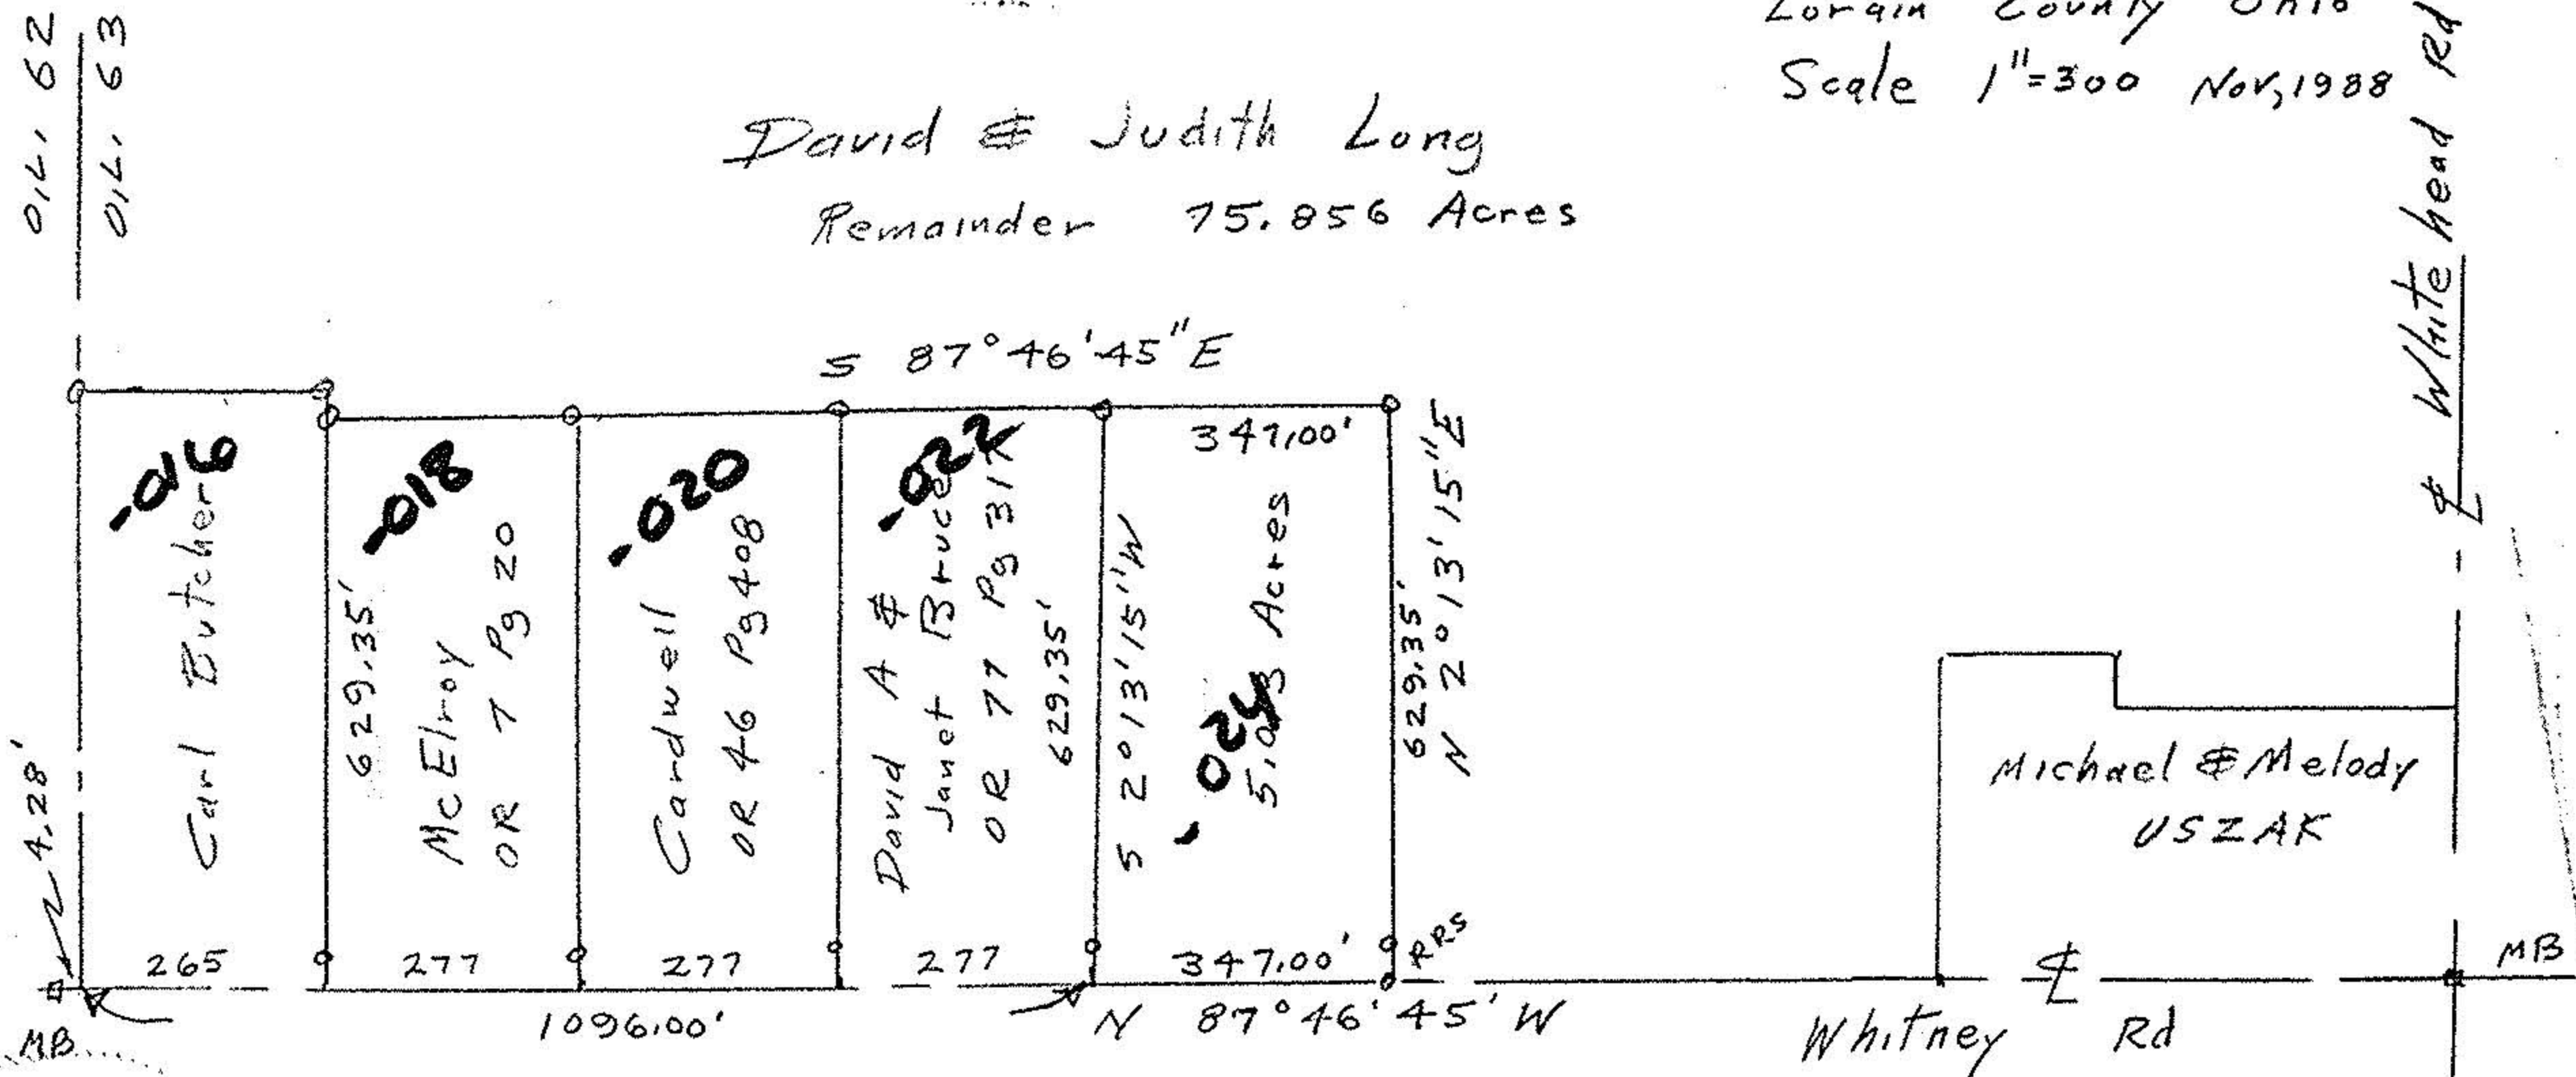 Lorain County Ohio
Scale 1"=300 Nov, 1988
O.L. 62
O.L. 63
David & Judith Long
Remainder 75.856 Acres
White head Rd
℄
S 87°46'45"E
-016
Carl Butcher
-018
629.35'
McElroy
OR 7 Pg 20
-020
Cardwell
OR 46 Pg 408
-022
David A &
Janet Bruce
OR 77 Pg 317
629.35'
S 2°13'15"W
347.00'
-024
Acres
629.35'
N 2°13'15"E
Michael & Melody
USZAK
4.28'
265
277
277
277
347.00'
RRS
MB
MB
1096.00'
N 87°46'45'W
℄
Whitney Rd